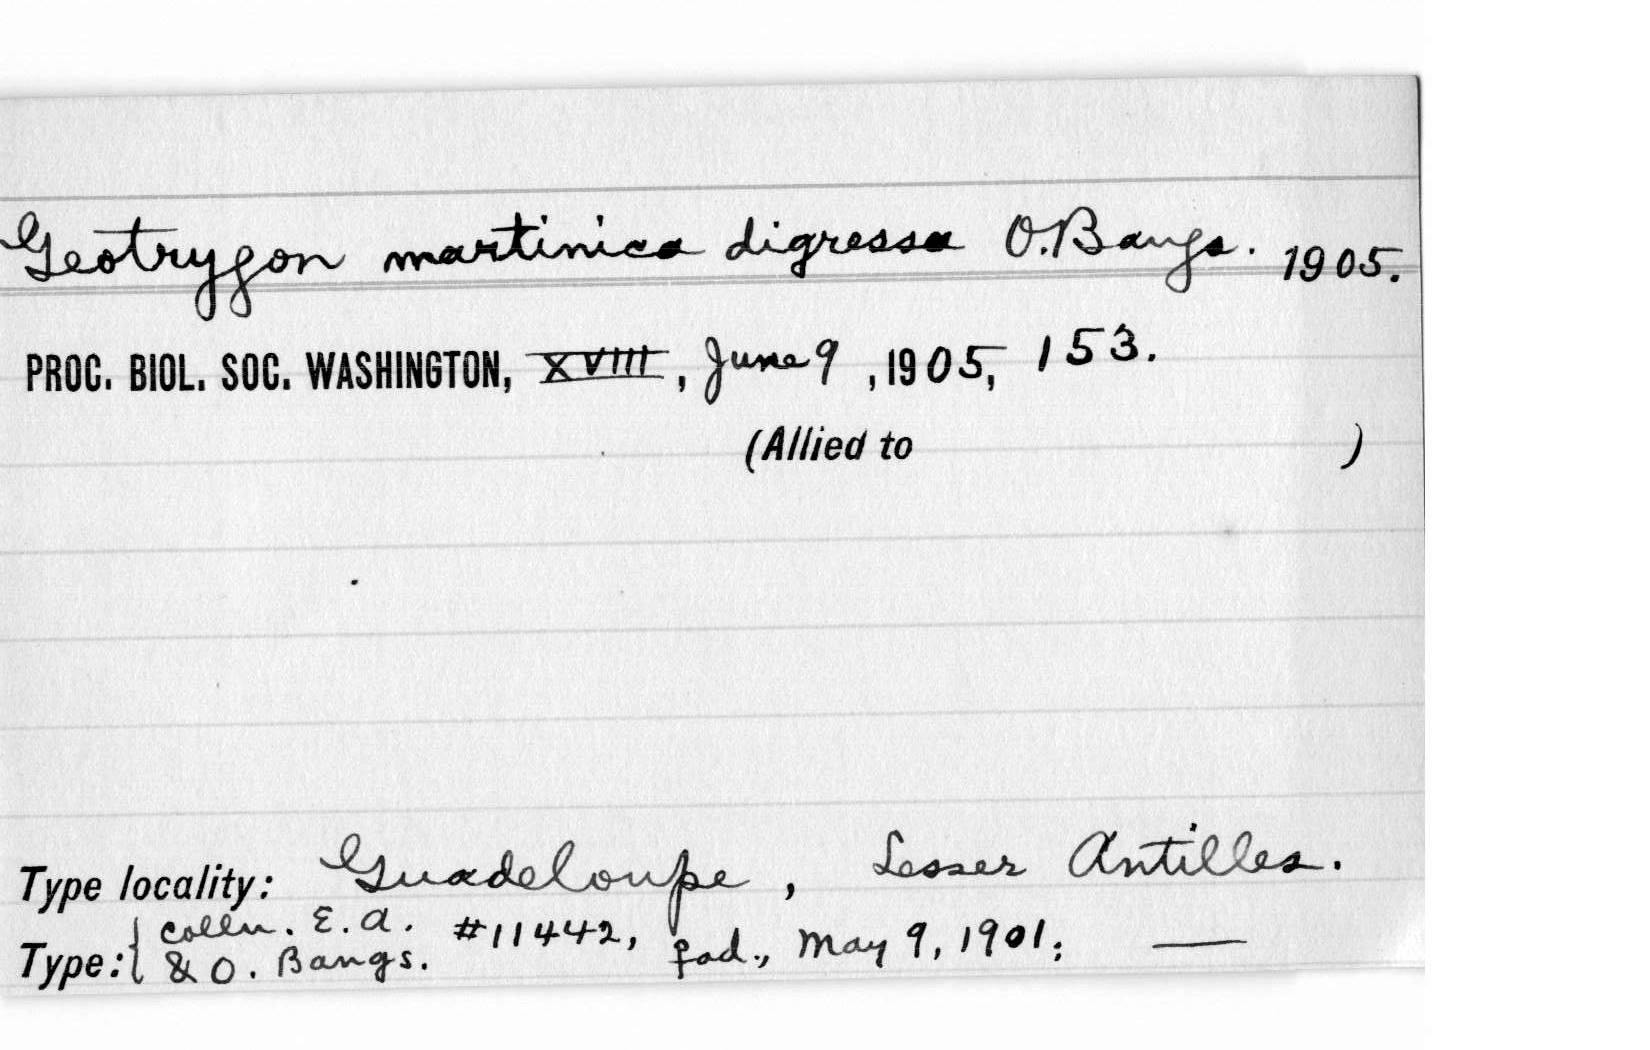 Geotrygon martinica digressa O. Bangs. 1905.
PROC. BIOL. SOC. WASHINGTON, XVIII, June 9, 1905, 153.
(Allied to )
Type locality: Guadeloupe, Lesser Antilles.
Type: { Colln. E. A. & O. Bangs. #11442, ad., May 9, 1901; —